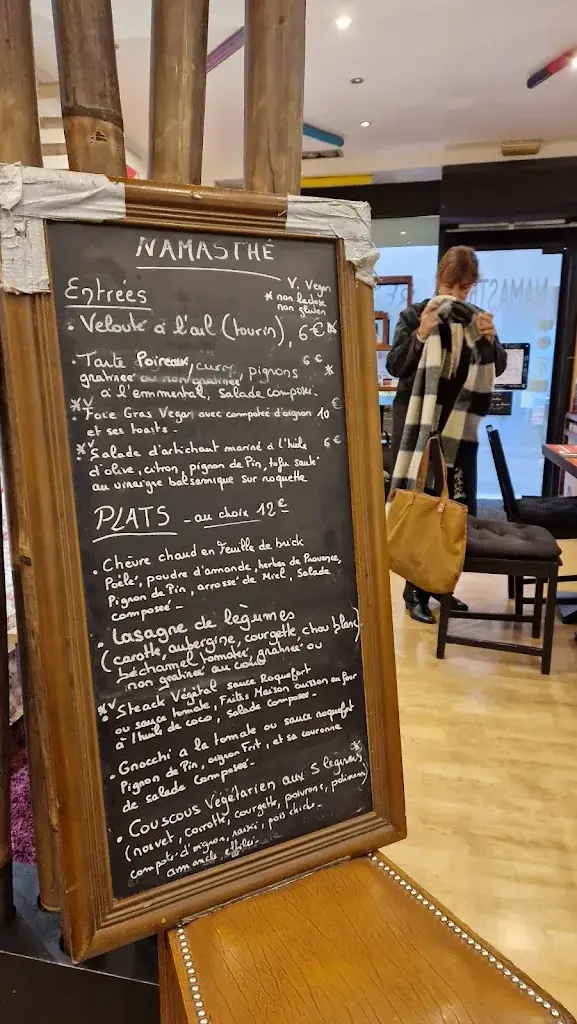 NAMASTHÉ
Entrées
V. Vegan
* non lactose
non gluten
• Velouté à l'ail (tourin), 6€ *
• Tarte Poireaux/curry, pignons 6€ *
gratinée ou non gratinée
à l'emmental, Salade composée.
*V Foie Gras Vegan avec compotée d'oignon 10€
et ses toasts.
*V Salade d'artichaut mariné à l'huile 6€
d'olive, citron, pignon de Pin, tofu sauté
au vinaigre balsamique sur roquette
PLATS - au choix 12€
• Chèvre chaud en feuille de brick
Poêlé, poudre d'amande, herbes de Provence,
Pignon de Pin, arrosé de Miel, Salade
composée -
• Lasagne de légumes
(carotte, aubergine, courgette, chou blanc)
béchamel tomatée, gratinée ou
non gratinée au
*V Steack Végétal sauce Roquefort
ou sauce tomate, Frites Maison cuisson au four
à l'huile de coco, Salade composée -
• Gnocchi a la tomate ou sauce roquefort
Pignon de Pin, oignon Frit, et sa couronne
de salade composée -
• Couscous Végétarien aux 5 légumes *
(navet, carotte, courgette, poivrons, potimarron)
compoté d'oignon, raisin, pois chiche -
amande effilée -
NAMAST